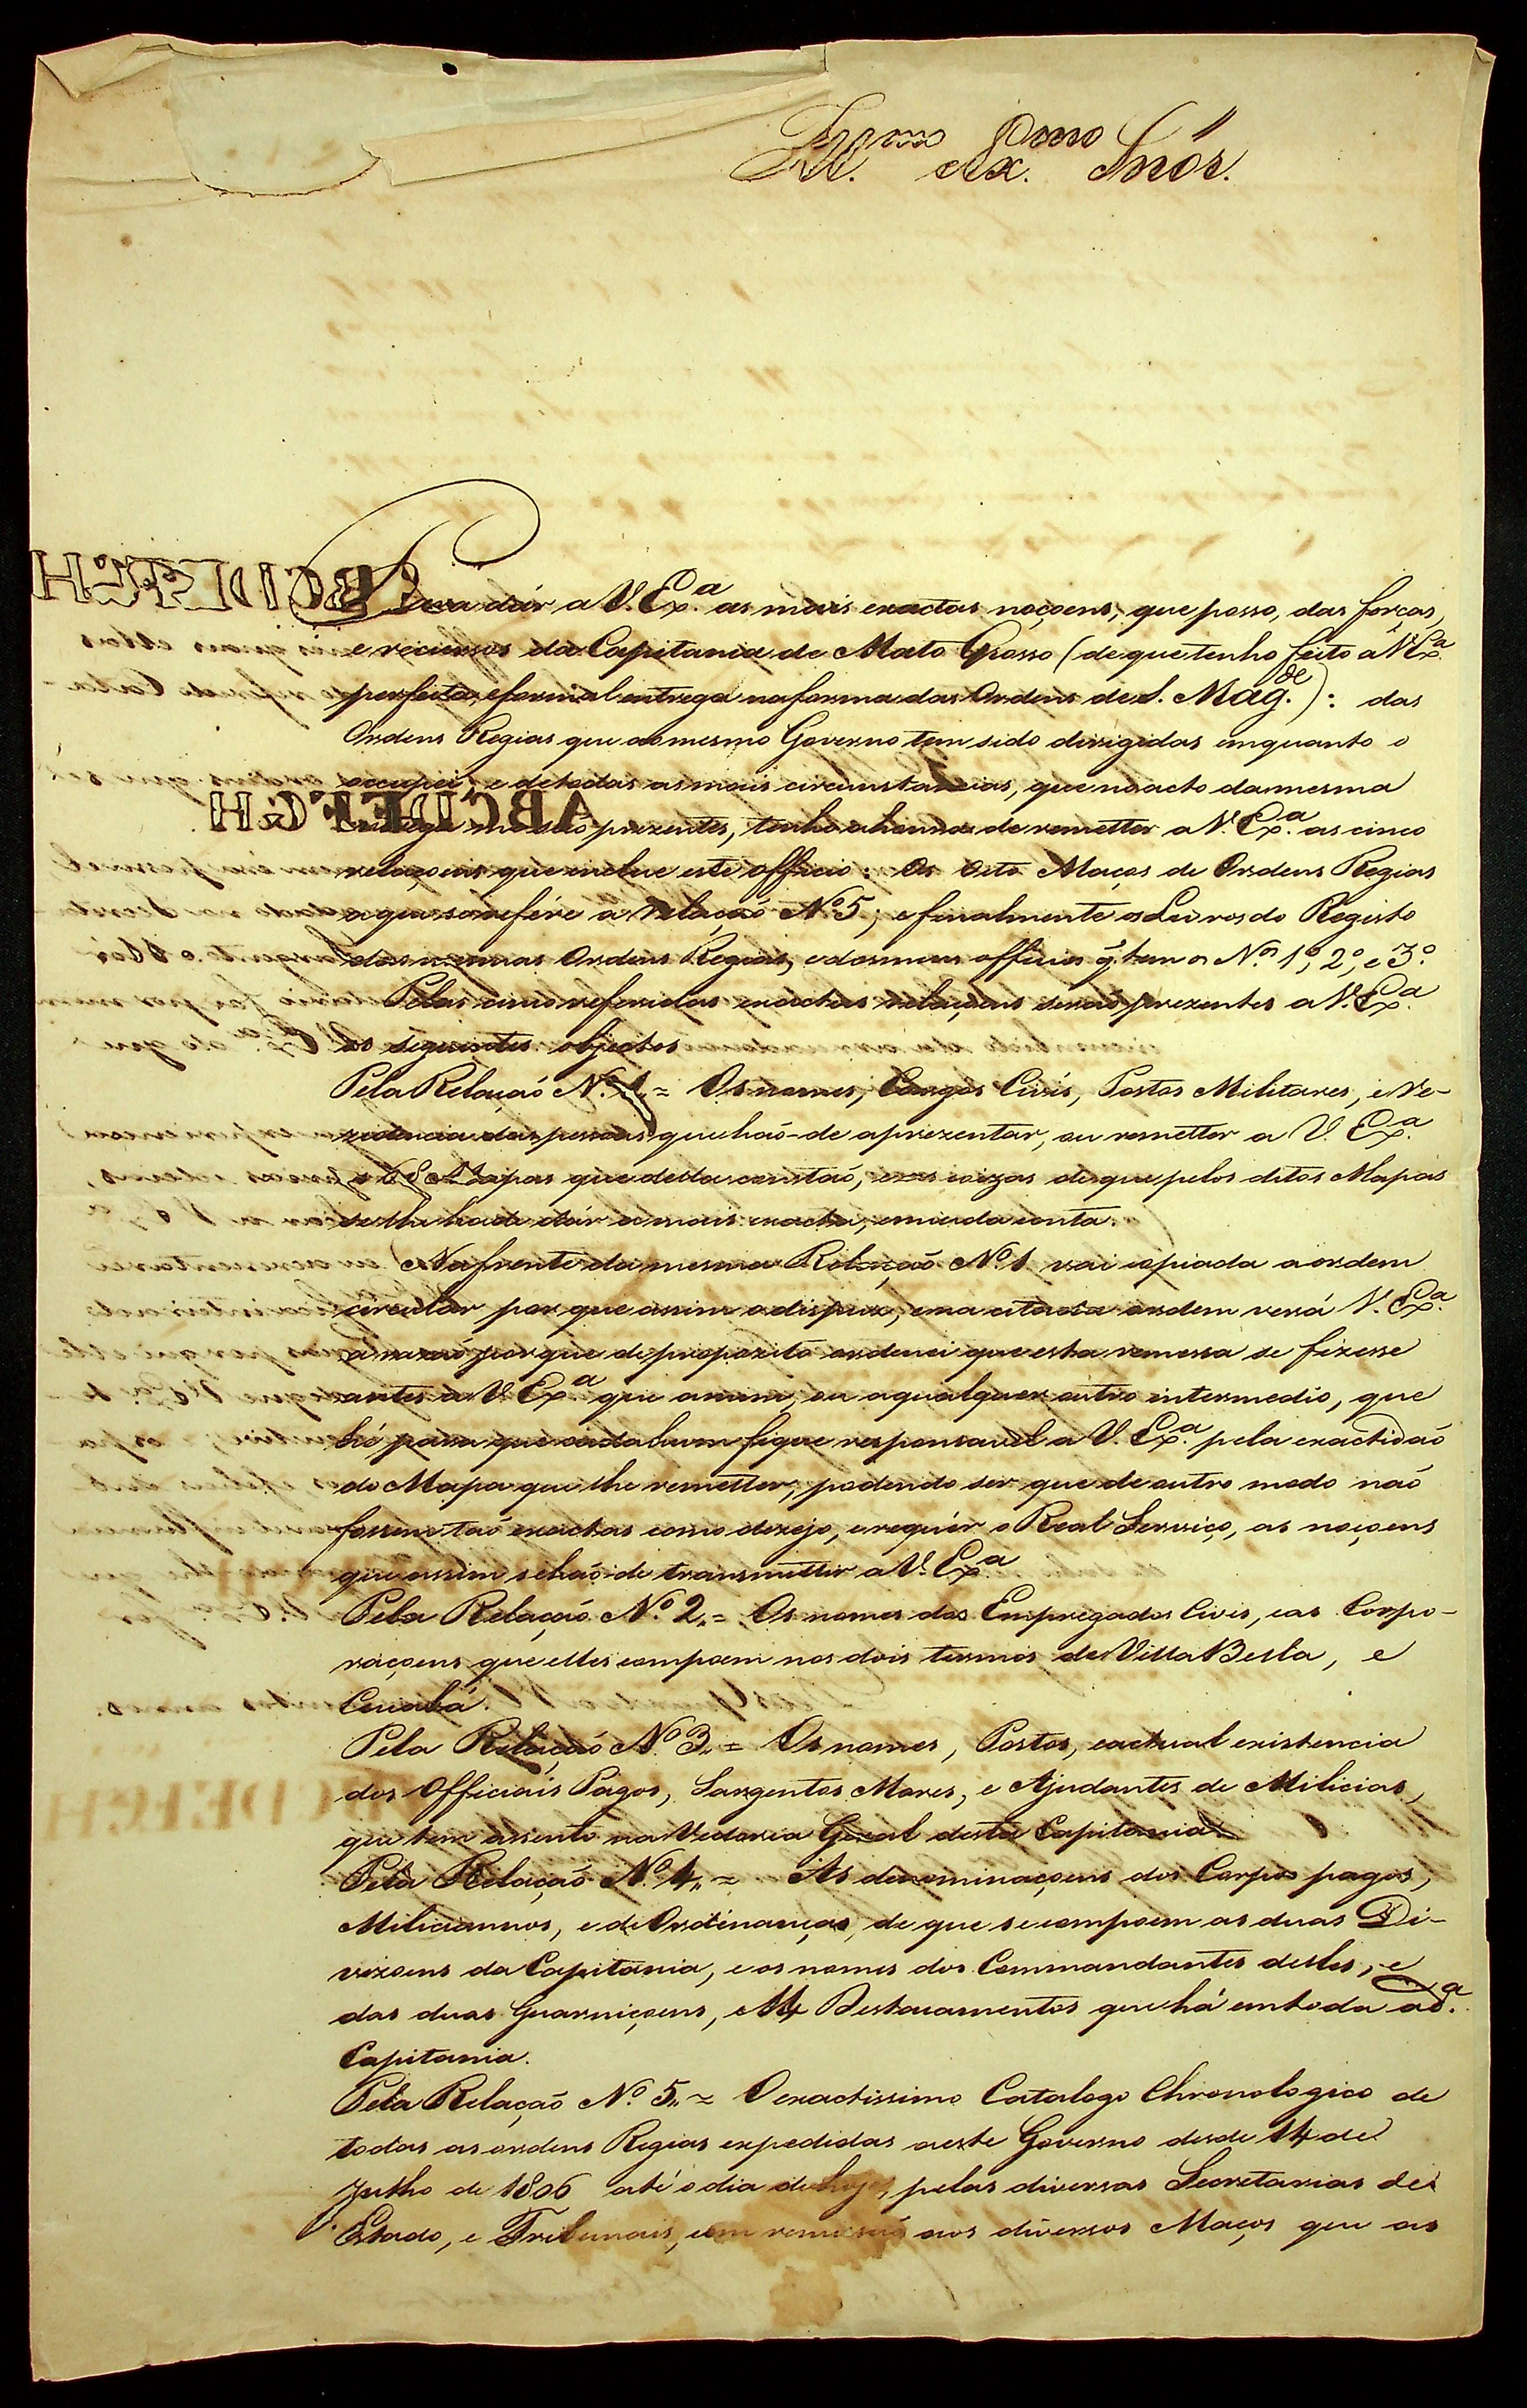 Ill.mo Ex.mo Snór.
Para dár a V. Ex.a as mais exactas noçoens, que posso, das forças,
e recursos da Capitania de Mato Grosso (de que tenho feito a V. Ex.a
perfeita, e formal entrega na forma das Ordens de S. Mag.de): das
Ordens Regias que ao mesmo Governo tem sido dirigidas emquanto o
occupei, e de todas as mais circumstancias, que no acto da mesma
entrega me são prezentes, tenho a honra de remetter a V. Ex.a as cinco
relaçoens que inclue este officio: Os oito Maços de Ordens Regias
a que se refére a Relação Nº 5; e finalmente os Livros do Registo
das mesmas Ordens Regias, e dos meus officios q. tem os N.os 1º, 2º, e 3º.
Pelas cinco referidas exactas relaçoens serão prezentes a V. Ex.a
os seguintes objectos
Pela Relação Nº 1„ = Os nomes, Cargos Civís, Postos Militares, e Re-
zidencia das pessoas que hão-de aprezentar, ou remetter a V. Ex.a
os 68 Mapas que della constão, e as coizas de que pelos ditos Mapas
se lhe hade dár a mais exacta, e miuda conta.
Na frente da mesma Relação Nº 1 vai copiada a ordem
circular por que assim o dispuz, e na citada ordem verá V. Ex.a
a razão porque de propozito ordenei que esta remessa se fizesse
antes a V. Ex.a que a mim, ou a qualquer outro intermedio, que
hé para que cada hum fique responsavel a V. Ex.a pela exactidão
do Mapa que lhe remetter, podendo ser que de outro modo não
fossem tão exactas como dezejo, e requér o Real Serviço, as noçoens
que assim se hão-de transmittir a V. Ex.a
Pela Relação Nº 2„ = Os nomes dos Empregados Civis, e as Corpo-
raçoens que elles compoem nos dois termos de Villa Bella, e
Cuiabá.
Pela Relação Nº 3„ = Os nomes, Postos, e actual existencia
dos Officiais Pagos, Sargentos Mores, e Ajudantes de Milicias,
que tem assento na Vedoria Geral desta Capitania.
Pela Relação Nº 4„ = As denominaçoens dos Corpos pagos,
Miliciannos, e de Ordinanças, de que se compoem as duas Di-
vizoens da Capitania, e os nomes dos Commandantes delles, e
das duas Guarniçoens, e 14 Destacamentos que há em toda a d.a
Capitania.
Pela Relação Nº 5„ = O exactissimo Catalogo Chronologico de
todas as ordens Regias expedidas a este Governo desde 14 de
Julho de 1806 até o dia de hoje, pelas diversas Secretarias de
Estado, e Tribunais, com remissão aos diversos Maços que as
ABCDEFGH